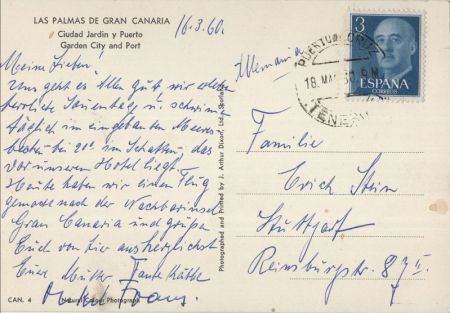 LAS PALMAS DE GRAN CANARIA
Ciudad Jardin y Puerto
Garden City and Port
16.3.60.
Meine Lieben!
Uns geht es Allen gut, wir erleben
herrliche Sonnentage u. schwimmen
täglich im eingebauten Meeres
becken bei 21° im Schatten, das
vor unserem Hotel liegt.
Heute haben wir einen Flug
gemacht nach der Nachbarinsel
Gran Canaria und grüßen
Euch von hier aus herzlichst
Eure Mutter Tante Käthe
Franz.
CAN. 4
Natural Colour Photograph
Photographed and Printed by J. Arthur Dixon, Ltd.
Alemania
3
ESPAÑA
CORREOS
PUERTO CRUZ
18 MAR
TENERIFE
Familie
Erich Stein
Stuttgart
Reinsburgstr. 87